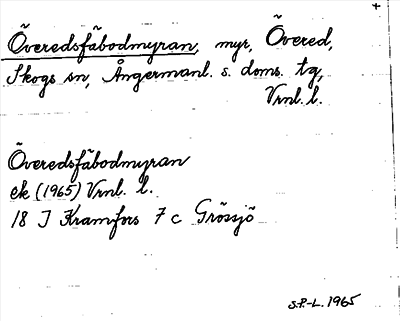 +
Överedsfäbodmyran, myr, Övered,
Skogs sn, Ångermanl. s. doms. tg,
Vrnl. l.
Överedsfäbodmyran
ek (1965) Vrnl. l.
18 J Kramfors 7 c Grössjö
S.P.-L. 1965